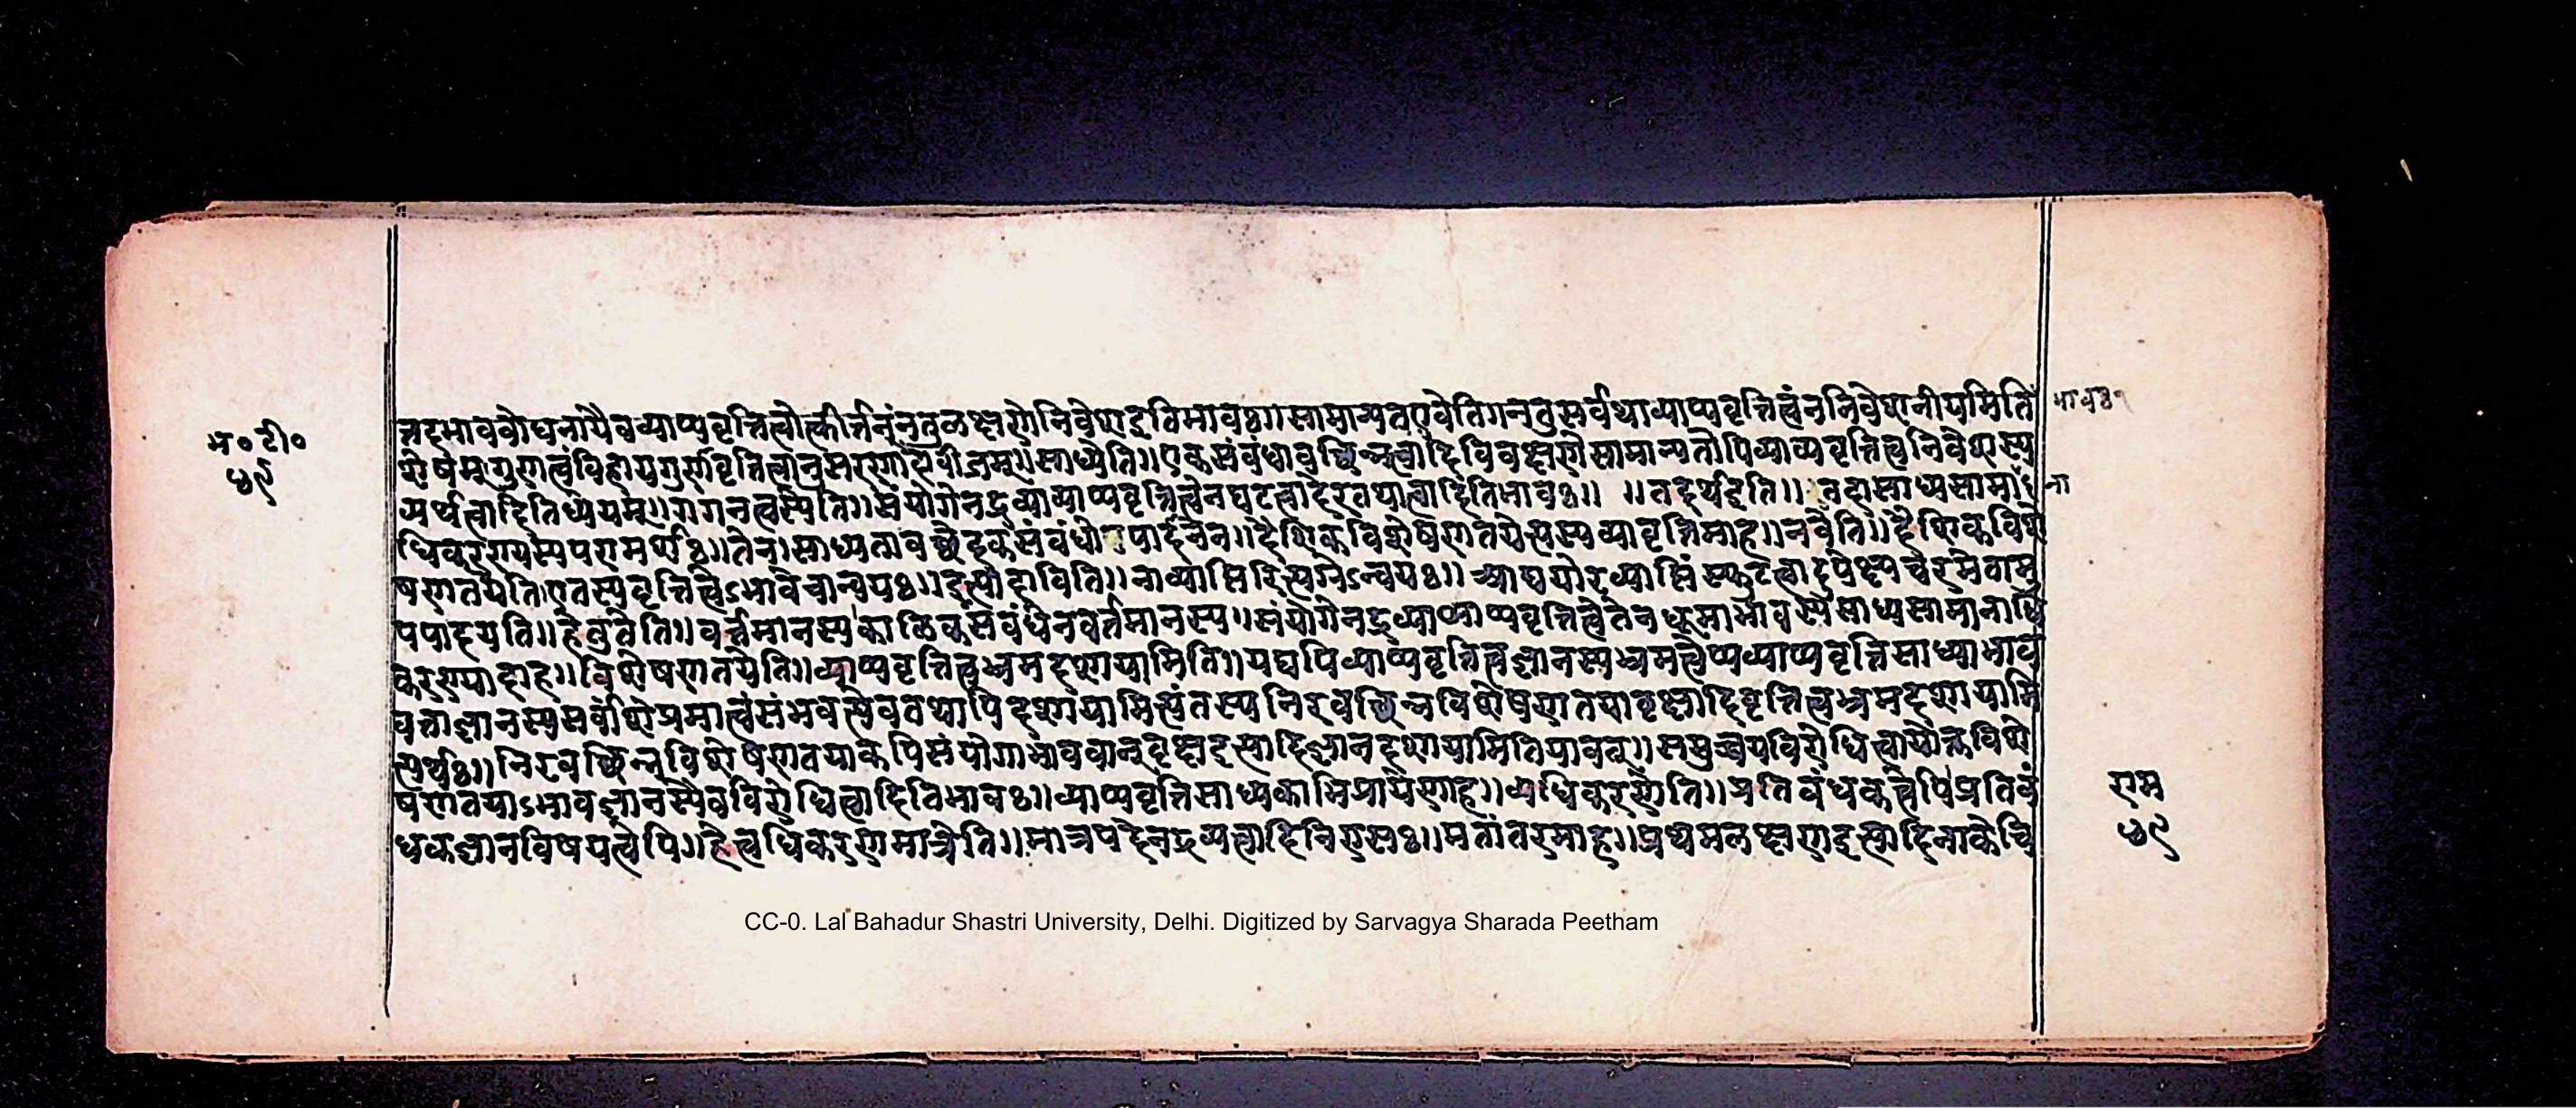 न्नदभावबोधनायैवव्याप्यवृत्तित्वोत्कीर्त्तनंनतुळक्षणेनिवेशइतिभावः॥सामान्यतएवेति॥ननुसर्वथाव्याप्यवृत्तित्वंननिवेशनीयमिति
म॰टी॰
५९
शेषम्॥गुणत्वंविहायगुणवृत्तित्वानुसरणेबीजम्॥साध्येति॥एकसंबंधावच्छिन्नत्वादिविवक्षणेसामान्यतोपिव्याप्यवृत्तित्वनिवेशस्य
व्यर्थत्वादितिध्येयम्॥गगनत्वस्येति॥संयोगेनद्रव्याव्याप्यवृत्तित्वेनघटत्वादेरतथात्वादितिभावः॥ ॥तदर्थइति॥ साध्यसामा
ना
धिकरण्यस्यपरामर्शः॥तेन॥साध्यतावच्छेदकसंबंधोपादनेन॥दैशिकविशेषणतयेत्यस्यव्यावृत्तिमाह॥नवेति॥दैशिकविशे
षणतयेति॥एतस्यवृत्तित्वेऽभावेचान्वयः॥इत्यादाविति॥नाव्याप्तिरित्यग्रेऽन्वयः॥आद्ययोरव्याप्तिंस्फुटत्वादुपेक्ष्यचरमेवामु
पपादयति॥हेतुतेति॥वर्त्तमानस्यकाळिकसंबंधेनवर्तमानस्य॥संयोगेनद्रव्याव्याप्यवृत्तित्वेतेनधूमाभावस्यसाध्यसामानाधि
करण्यादाह॥विशेषणतयेति॥व्याप्यवृत्तित्वभ्रमदशायामिति॥यद्यपिव्याप्यवृत्तित्वज्ञानस्यभ्रमत्वेप्यव्याप्यवृत्तिसाध्याभाव
वत्ताज्ञानस्यसर्वांशेप्रमात्वंसंभवत्येवतथापिदशायामित्यंतस्यनिरवच्छिन्नविशेषणतयावृक्षादिवृत्तित्वभ्रमदशायामि
त्यर्थः॥निरवच्छिन्नविशेषणतयाकपिसंयोगाभाववान्वृक्षइत्यादिज्ञानदशायामितियावत्॥समुच्चयविरोधित्वायोक्तविशे
षणतयाऽभावज्ञानस्यैवविरोधित्वादितिभावः॥व्याप्यवृत्तिसाध्यकाभिप्रायेणाह॥अधिकरणेति॥प्रतिबंधकत्वेपिप्रतिबं
धकज्ञानविषयत्वेपि॥हेत्वधिकरणमात्रेति॥मात्रपदेनद्रव्यत्वादिनिरासः॥मतांतरमाह॥प्रथमलक्षणइत्यादिनाकेचि
राम
५९
CC-0. Lal Bahadur Shastri University, Delhi. Digitized by Sarvagya Sharada Peetham